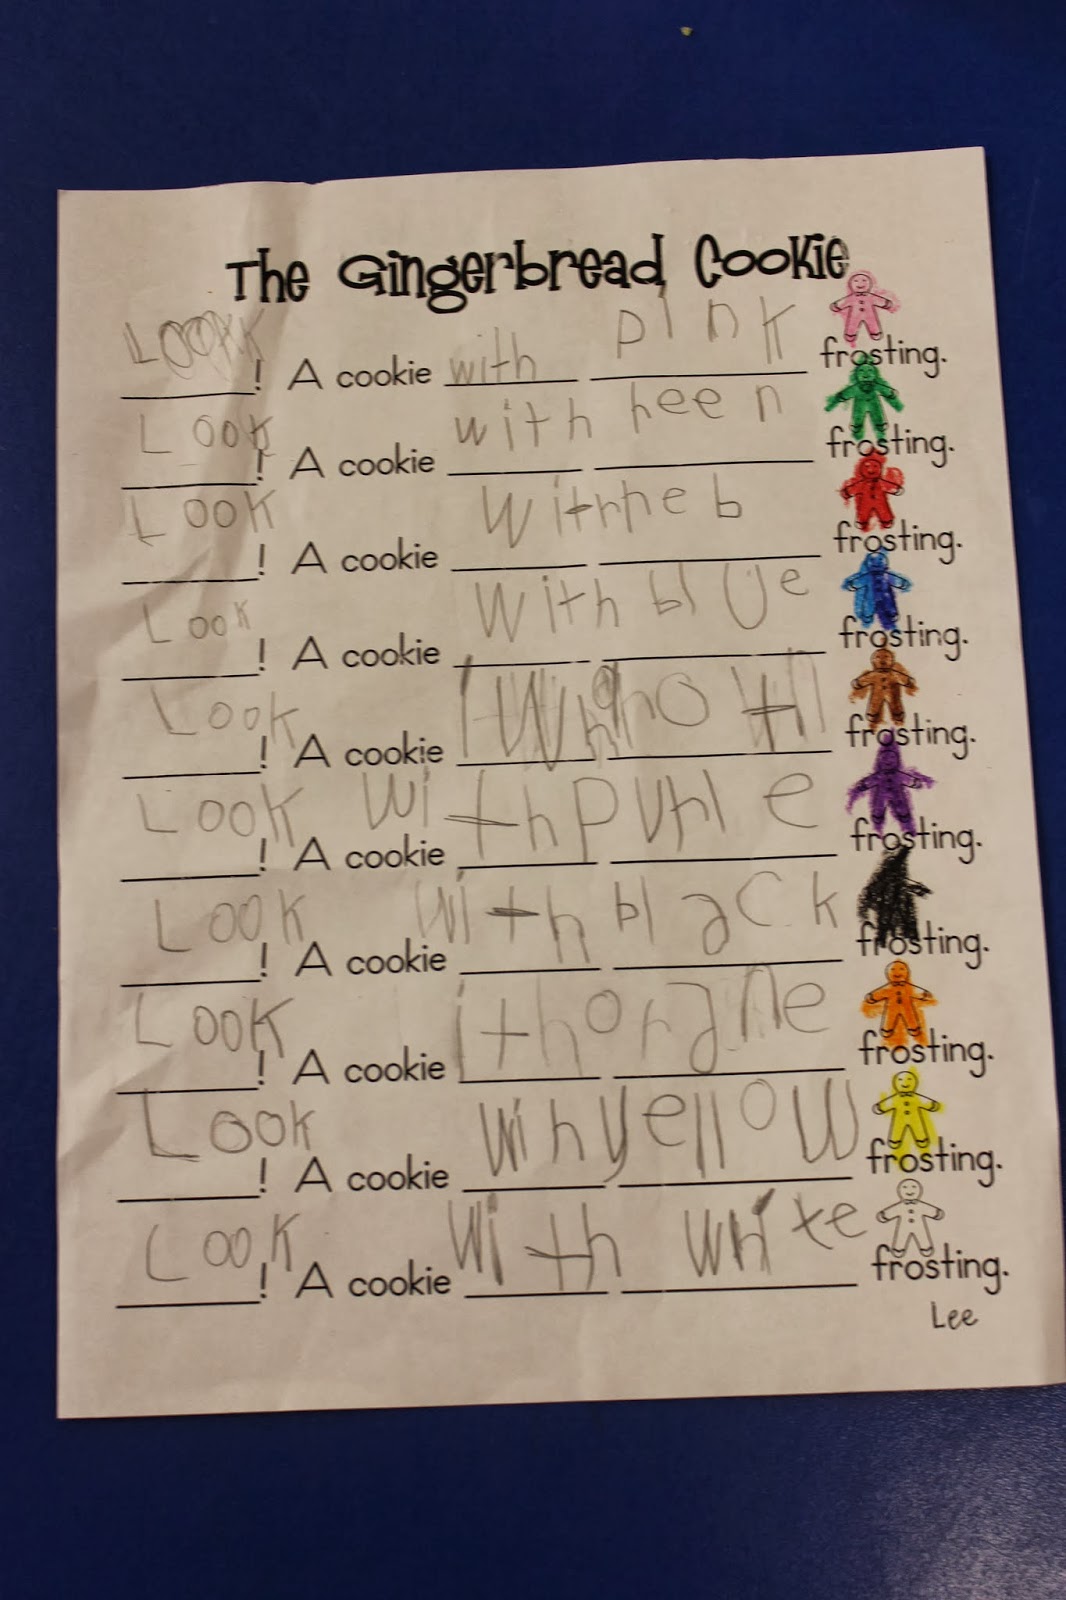 The Gingerbread Cookie
Look! A cookie with pink frosting.
Look! A cookie with heen frosting.
Look! A cookie Withhe b frosting.
Look! A cookie With blue frosting.
Look! A cookie frosting.
Look! A cookie with purle frosting.
Look! A cookie with black frosting.
Look! A cookie ith orane frosting.
Look! A cookie wih yellow frosting.
Look! A cookie with white frosting.
Lee